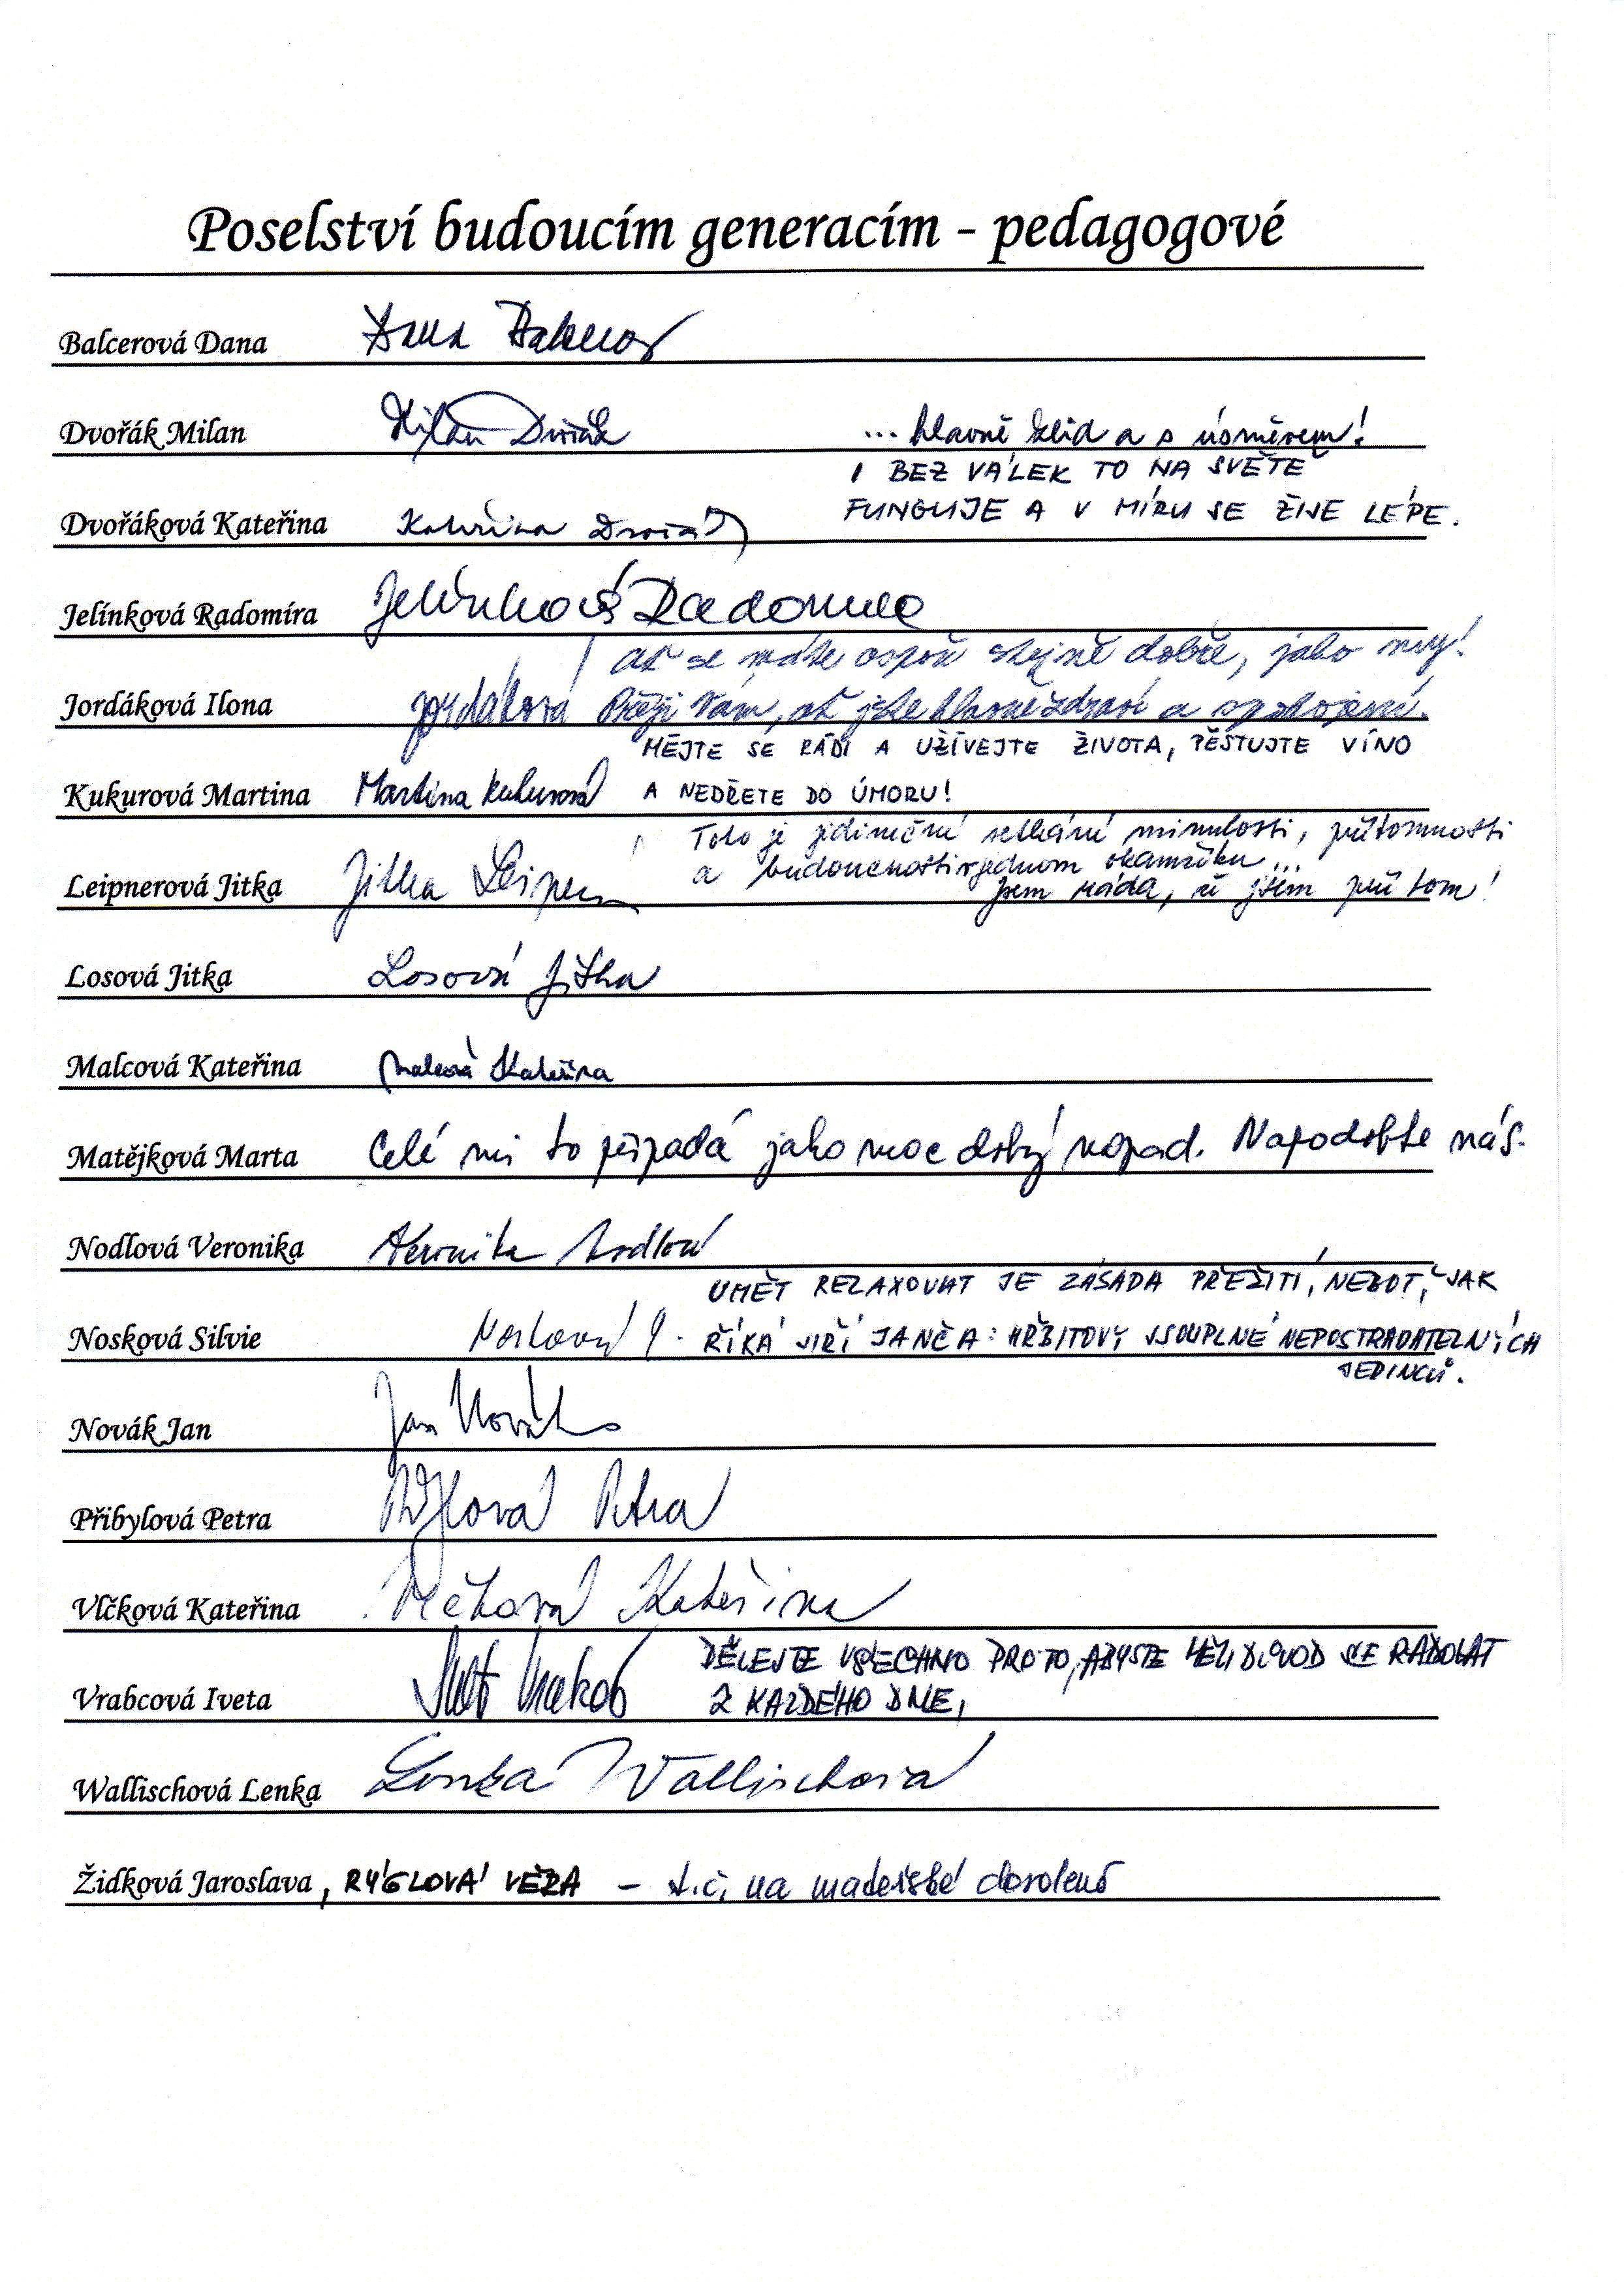 Poselství budoucím generacím - pedagogové
Balcerová Dana Dana Balcerov
Dvořák Milan Milan Dvořák ... hlavně klid a s úsměvem!
I BEZ VÁLEK TO NA SVĚTĚ
Dvořáková Kateřina Kateřina Dvořák FUNGUJE A V MÍRU SE ŽIJE LÉPE.
Jelínková Radomíra Jelínková Radomíra
Ať se máte aspoň stejně dobře, jako my!
Jordáková Ilona Jordáková Přeji Vám, ať jste hlavně zdraví a spokojení.
MĚJTE SE RÁDI A UŽÍVEJTE ŽIVOTA, PĚSTUJTE VÍNO
Kukurová Martina Martina Kukurová A NEDŘETE DO ÚMORU!
Toto je jedinečné setkání minulosti, přítomnosti
a budoucnosti v jednom okamžiku...
Leipnerová Jitka Jitka Leipner Jsem ráda, že jsem při tom!
Losová Jitka Losová Jitka
Malcová Kateřina Malcová Kateřina
Matějková Marta Celé mi to připadá jako moc dobrý nápad. Napodobte nás.
Nodlová Veronika Veronika Nodlová
UMĚT RELAXOVAT JE ZÁSADA PŘEŽITÍ, NEBOŤ, JAK
Nosková Silvie Nosková S. ŘÍKÁ JIŘÍ JANČA: HŘBITOVY JSOU PLNÉ NEPOSTRADATELNÝCH
JEDINCŮ.
Novák Jan Jan Novák
Přibylová Petra Přibylová Petra
Vlčková Kateřina Vlčková Kateřina
DĚLEJTE VŠECHNO PROTO, ABYSTE MĚLI DŮVOD SE RADOVAT
Vrabcová Iveta Z KAŽDÉHO DNE,
Wallischová Lenka Lenka Wallischová
Židková Jaroslava, RÝGLOVÁ VĚRA - t.č. na mateřské dovolené